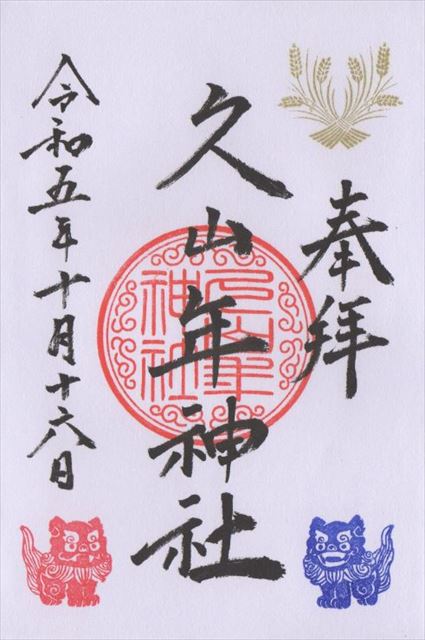 奉拝
久山年神社
久山年神社
令和五年十月十六日